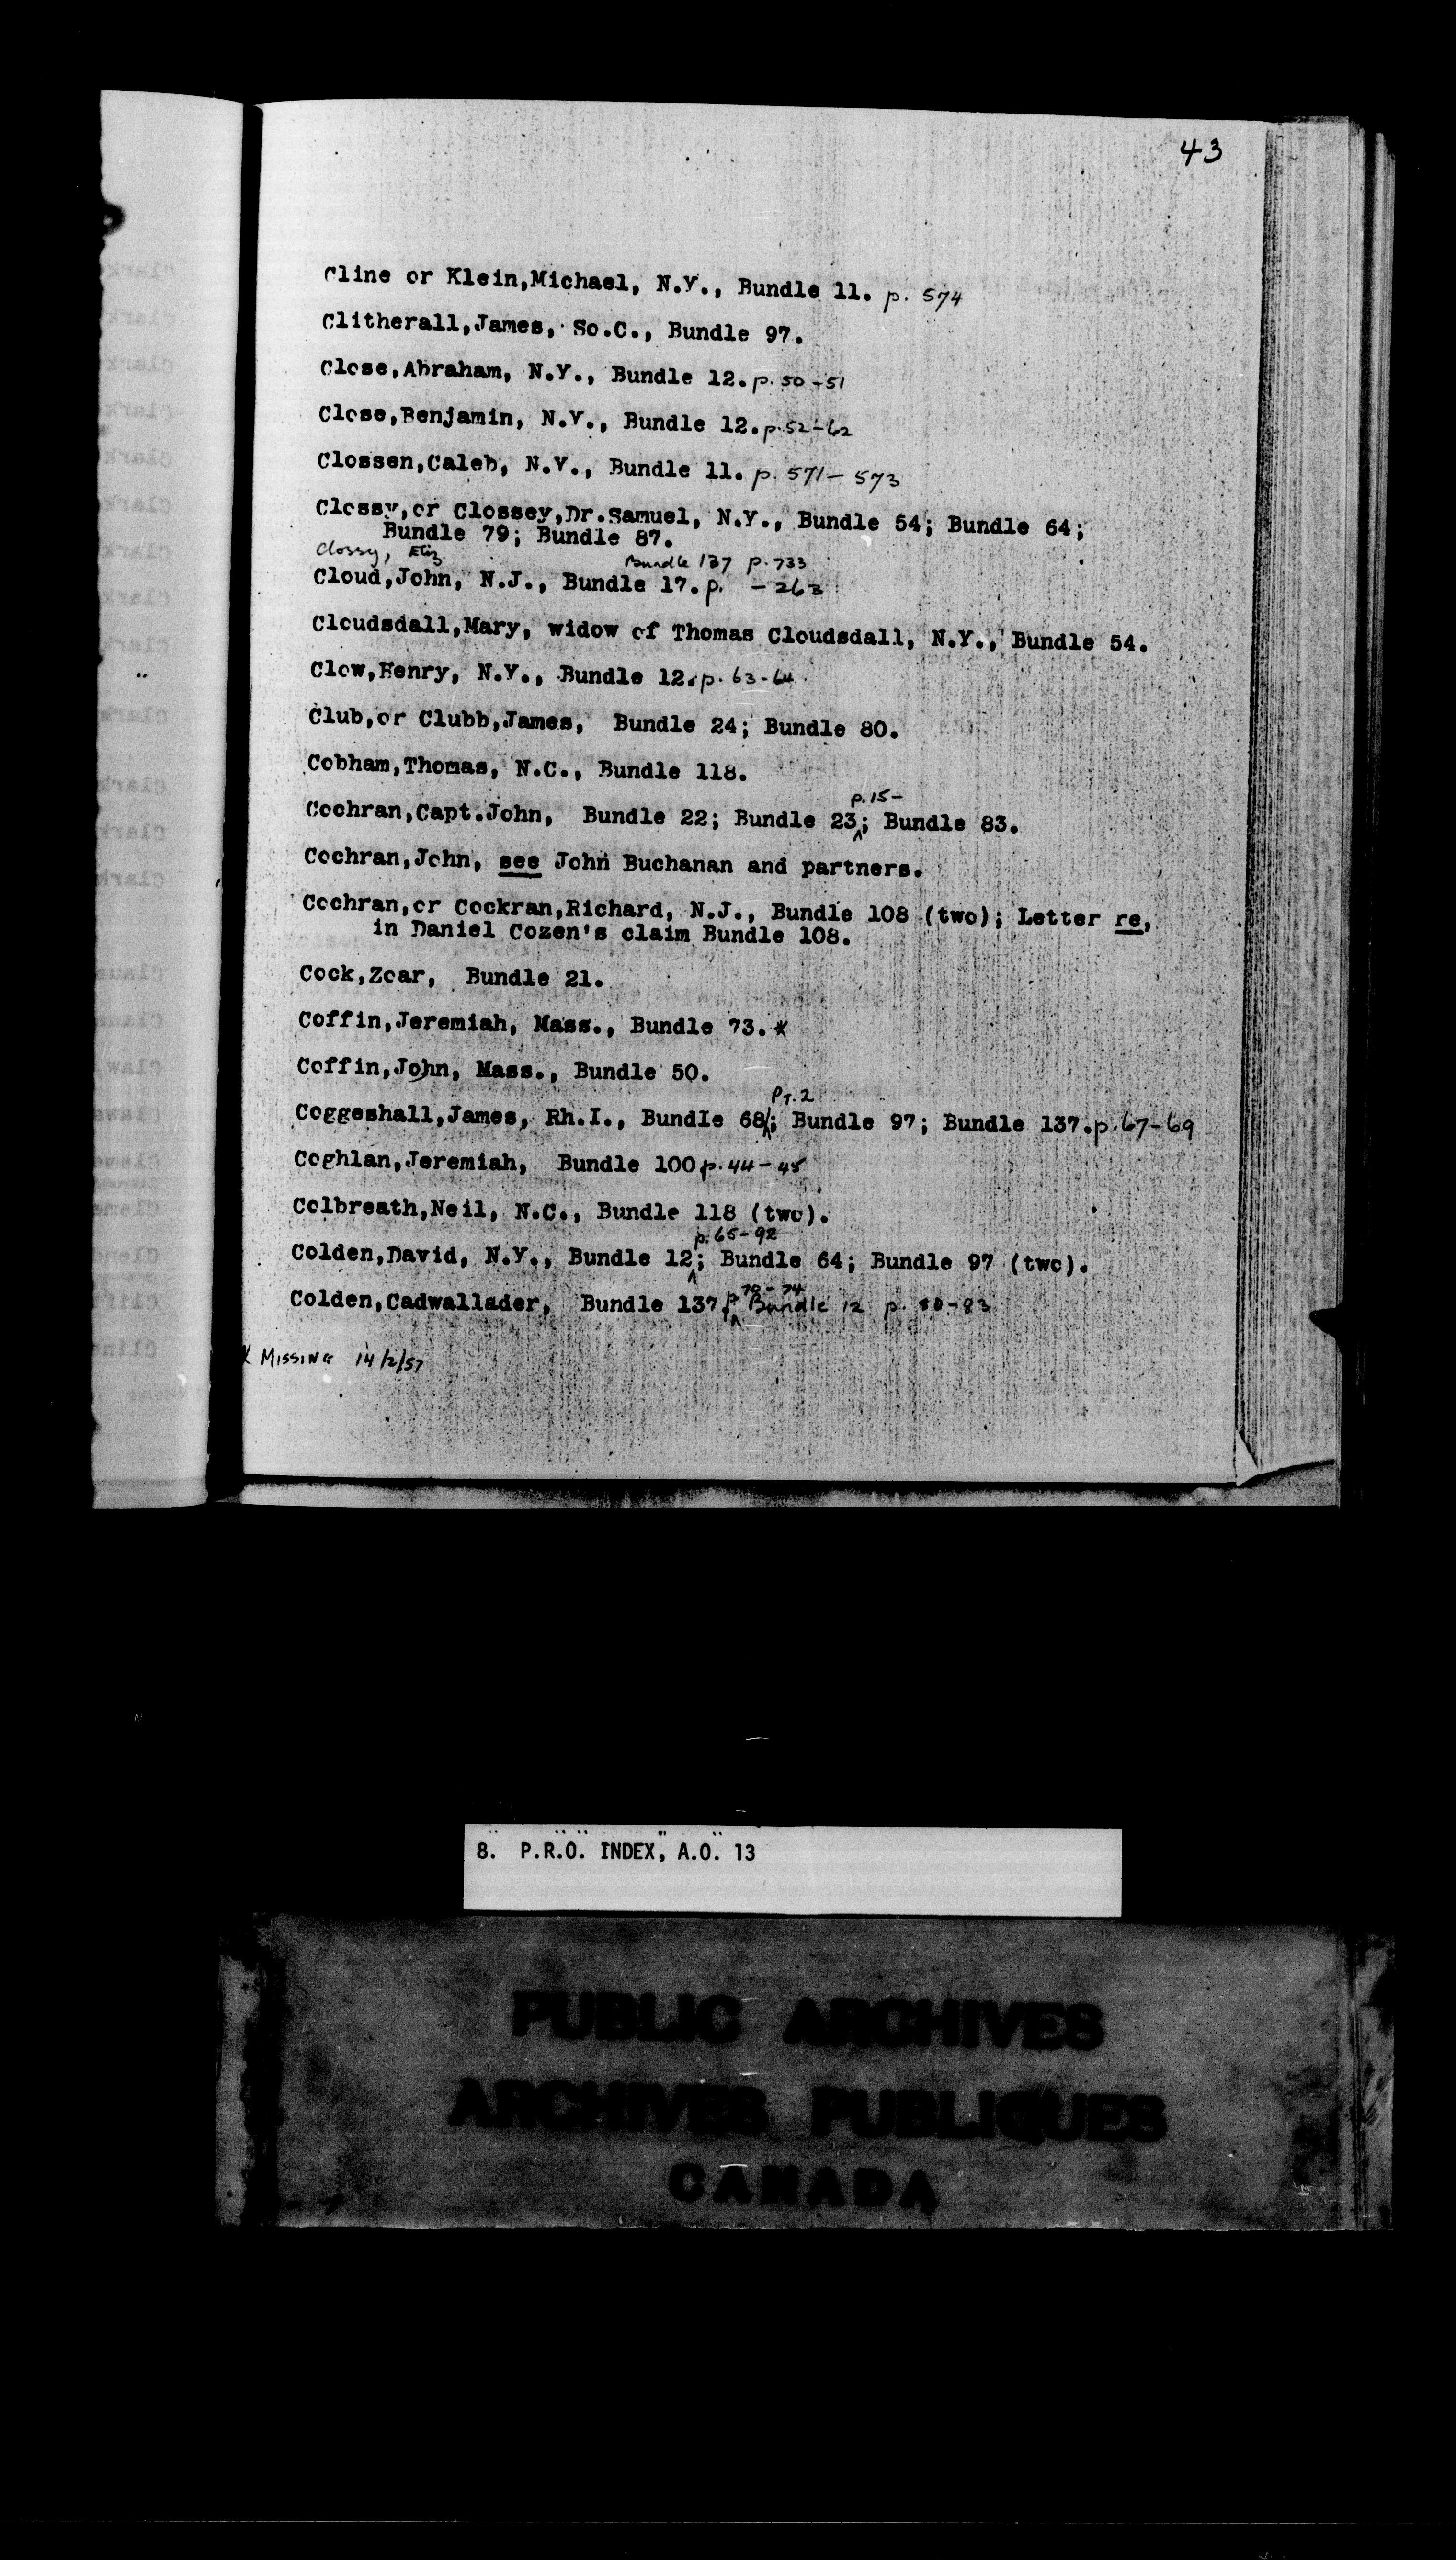 43
Cline or Klein,Michael, N.Y., Bundle 11. p. 574
Clitherall,James, So.C., Bundle 97.
Close,Abraham, N.Y., Bundle 12. p. 50-51
Close,Benjamin, N.Y., Bundle 12. p. 52-62
Clossen,Caleb, N.Y., Bundle 11. p. 571-573
Clossy,or Clossey,Dr.Samuel, N.Y., Bundle 54; Bundle 64;
Bundle 79; Bundle 87.
Clossy, Eliz Bundle 137 p. 733
Cloud,John, N.J., Bundle 17. p. - 263
Cloudsdall,Mary, widow of Thomas Cloudsdall, N.Y., Bundle 54.
Clow,Henry, N.Y., Bundle 12. p. 63-64
Club,or Clubb,James, Bundle 24; Bundle 80.
Cobham,Thomas, N.C., Bundle 118.
p. 15-
Cochran,Capt.John, Bundle 22; Bundle 23; Bundle 83.
Cochran,John, see John Buchanan and partners.
Cochran,or Cockran,Richard, N.J., Bundle 108 (two); Letter re,
in Daniel Cozen's claim Bundle 108.
Cock,Zoar, Bundle 21.
Coffin,Jeremiah, Mass., Bundle 73. x
Coffin,John, Mass., Bundle 50.
Pt. 2
Coggeshall,James, Rh.I., Bundle 68; Bundle 97; Bundle 137. p. 67-69
Coghlan,Jeremiah, Bundle 100 p. 44-45
Colbreath,Neil, N.C., Bundle 118 (two).
p. 65-92
Colden,David, N.Y., Bundle 12; Bundle 64; Bundle 97 (two).
Colden,Cadwallader, Bundle 137. p 70-74 Bundle 12 p. 80-83
x MISSING 14/2/57
8. P.R.O. INDEX, A.O. 13
PUBLIC ARCHIVES
ARCHIVES PUBLIQUES
CANADA